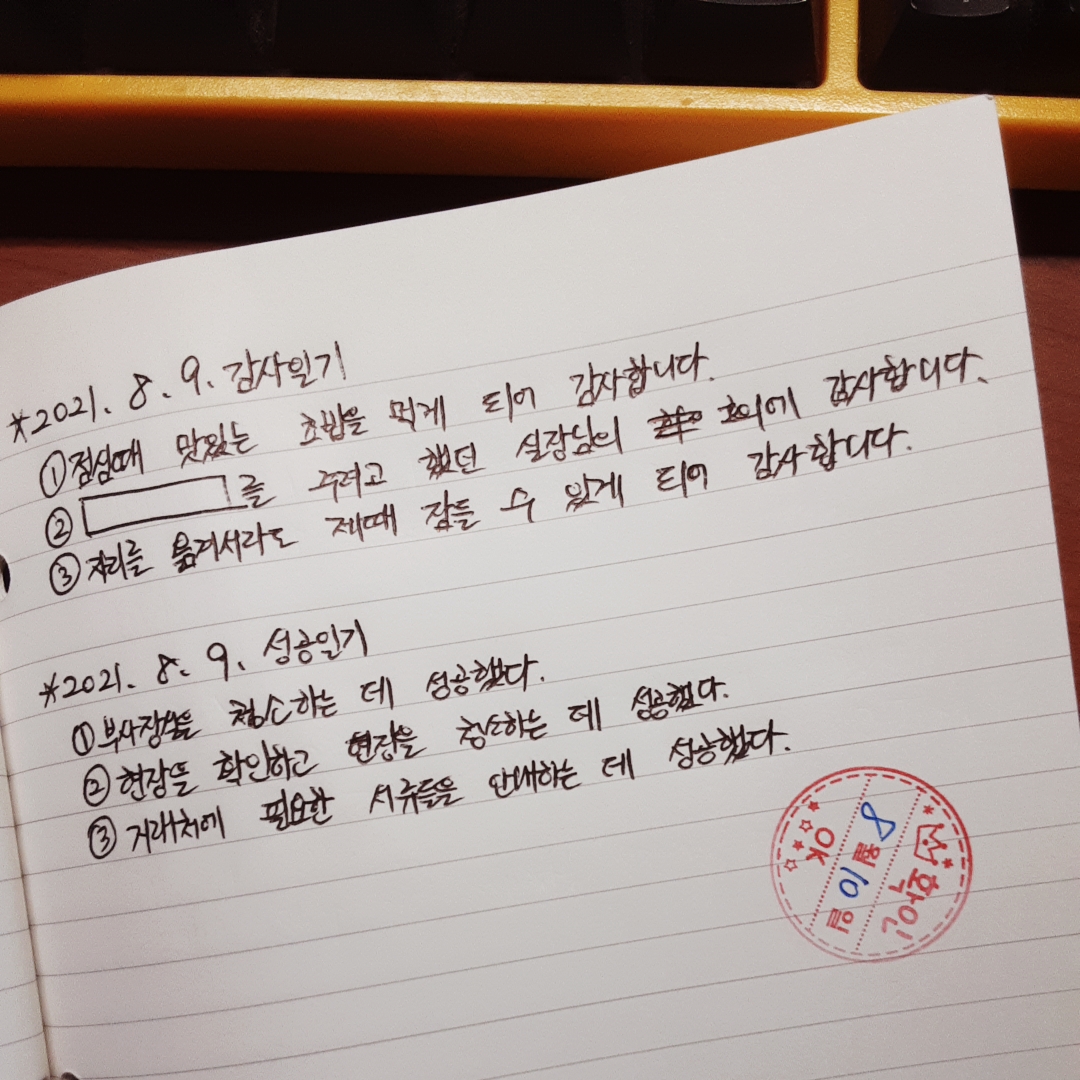 *2021. 8. 9. 감사일기
①점심때 맛있는 초밥을 먹게 되어 감사합니다.
② 를 주려고 했던 실장님의 호의에 감사합니다.
③자리를 옮겨서라도 제때 잠들 수 있게 되어 감사합니다.
*2021. 8. 9. 성공일기
①부사장실을 청소하는 데 성공했다.
②현장들 확인하고 현장을 청소하는 데 성공했다.
③거래처에 필요한 서류들을 안내하는 데 성공했다.
확인
8월 10일
OK